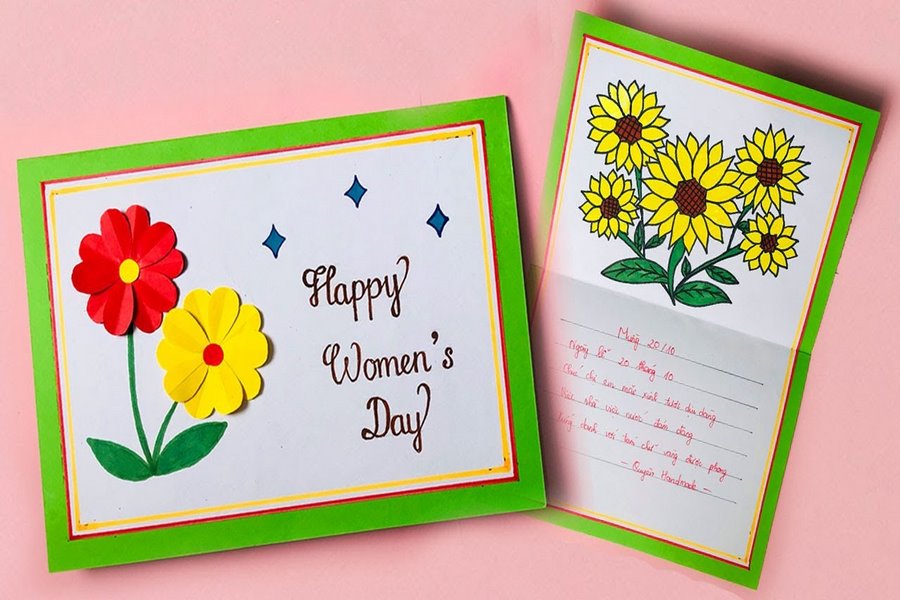 Happy
Women's
Day
Mừng 20/10
Ngày lễ 20 tháng 10
Chúc chị em mãi xinh tươi dịu dàng
Việc nhà việc nước đảm đang
Xứng danh với tám chữ vàng được phong
- Quyên Handmade -